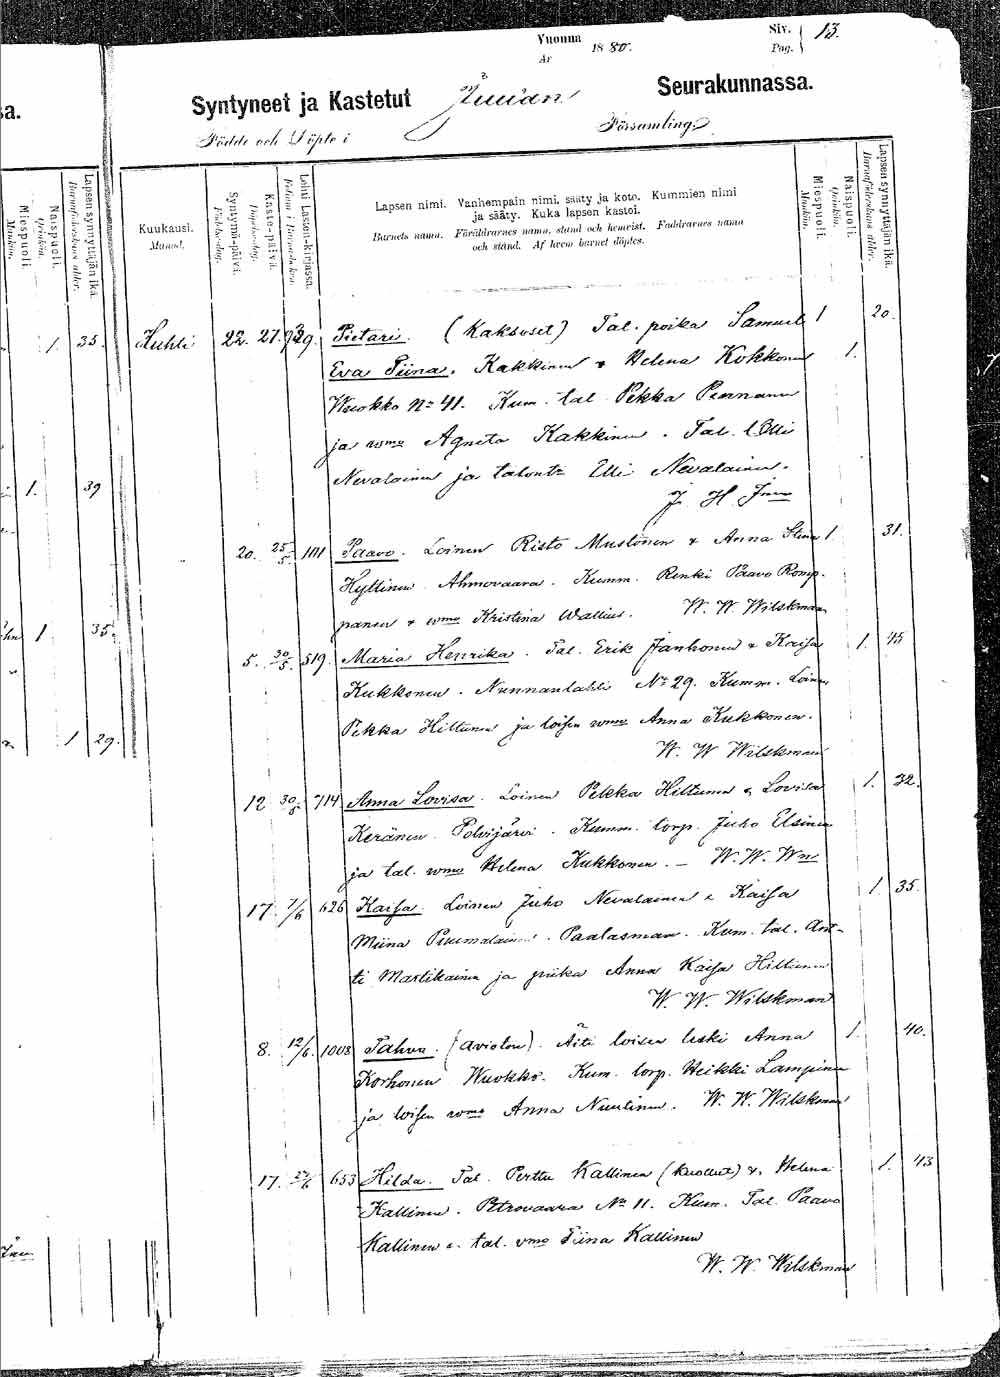 Vuonna 1880.
År
Siv. 13.
Pag.
Syntyneet ja Kastetut Juuan Seurakunnassa.
Födde och Döpte i Församling.
sa.
Lapsen synnyttäjän ikä.
Barnaföderskans ålder.
Naispuoli.
Qvinkön.
Miespuoli.
Mankön.
Kuukausi.
Månad.
Syntymä-päivä.
Födelsedag.
Kaste-päivä.
Döpelsedag.
Lehti Lasten-kirjassa.
Folium i Barnaboken.
Lapsen nimi. Vanhempain nimi, sääty ja koto. Kummien nimi
ja sääty. Kuka lapsen kastoi.
Barnets namn. Föräldrarnes namn, stånd och hemvist. Faddrarnes namn
och stånd. Af hvem barnet döptes.
Miespuoli.
Mankön.
Naispuoli.
Qvinkön.
Lapsen synnyttäjän ikä.
Barnaföderskans ålder.
1. 35.
1. 39
1 35.
1 29.
Huhti 22. 27. Pietari (Kaksoset) Tal. poika Samuel 1 20.
Eva Tiina. Kakkinen & Helena Kokkonen 1.
Wuokko No 41. Kum. tal. Pekka Pennanen
ja vmo Agneta Kakkinen. Tal. Olli
Nevalainen ja talont. Elli Nevalainen.
J. H.
20. 25/5 101 Paavo. Loinen Risto Mustonen & Anna Stina 1 31.
Hyttinen Ahmovaara. Kumm. Renki Paavo Romp-
panen & vmo Kristina Wallius. W. W. Wilskman
5. 30/5. 519. Maria Henrika. Tal. Erik Janhonen & Kaisa 1. 45
Kukkonen. Nunnanlahti No 29. Kumm. Loinen
Pekka Hiltunen ja loisen vmo Anna Kukkonen.
W. W Wilskman
12 714 Anna Lovisa. Loinen Pekka Hiltunen & Lovisa 1. 32.
Keränen Polvijärvi. Kumm. torp. Juho Elsinen
ja tal. vmo Helena Kukkonen. — W. W. Wn
17. 7/6 626 Kaisa. Loinen Juho Nevalainen & Kaisa 1 35.
Miina Puumalainen. Paalasmaa. Kum. tal. Ant-
ti Martikainen ja piika Anna Kaisa Hiltunen
W. W. Wilskman
8. 12/6. 1008 Tahvo. (avioton). Äiti loisen leski Anna 1. 40.
Korhonen Wuokko. Kum. torp. Heikki Lampinen
ja loisen vmo Anna Nuutinen. W. W. Wilskman
17. 653 Hilda. Tal. Perttu Kallinen (kuollut) & Helena 1. 43
Kallinen. Petrovaara No 11. Kum. Tal. Paavo
Kallinen & tal. vmo Tiina Kallinen
W. W. Wilskman